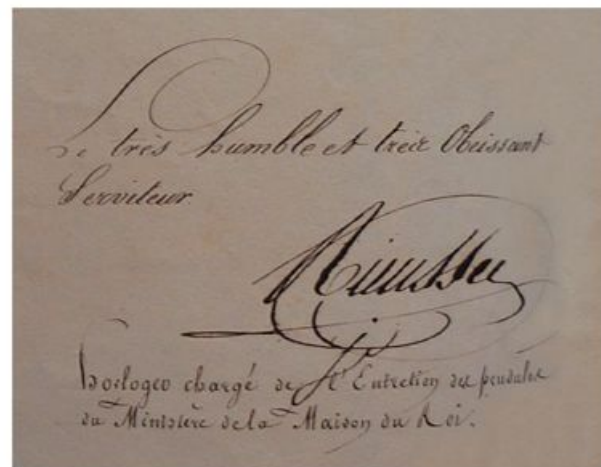 Le très humble et très Obeissant
Serviteur
horloger chargé de l'Entretien des pendules
du Ministère de la Maison du Roi.